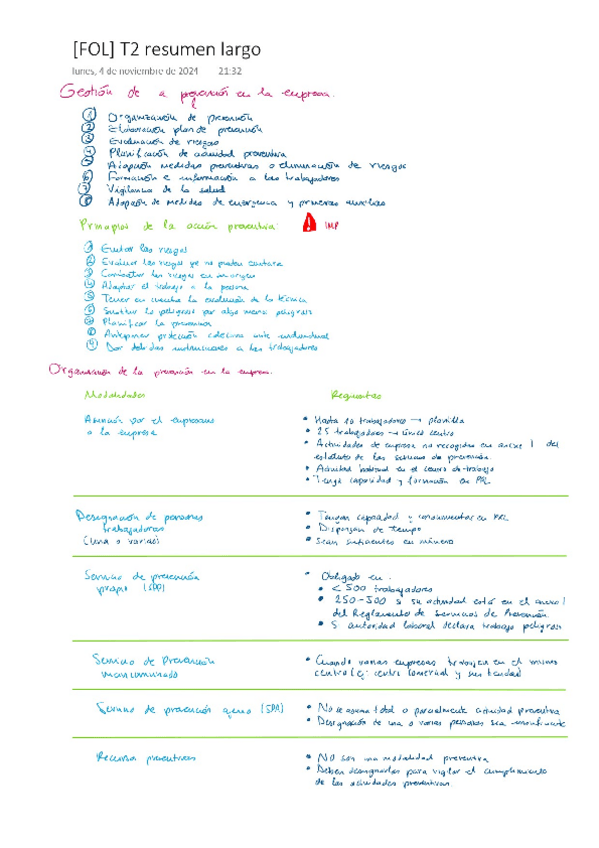 [FOL] T2 resumen largo
lunes, 4 de noviembre de 2024 21:32
Gestión de a prevención en la empresa.
1 Organización de prevención
2 Elaboración plan de prevención
3 Evaluación de riesgos
4 Planificación de actividad preventiva
5 Adopción medidas preventivas o eliminación de riesgos
6 Formación e información a los trabajadores
7 Vigilancia de la salud
8 Adopción de medidas de emergencia y primeros auxilios
Principios de la acción preventiva: IMP
1 Evitar los riesgos
2 Evaluar los riesgos que no pueden evitarse
3 Combatir los riesgos en su origen
4 Adaptar el trabajo a la persona
5 Tener en cuenta la evolución de la técnica
6 Sustituir lo peligroso por algo menos peligroso
7 Planificar la prevención
8 Anteponer protección colectiva ante individual
9 Dar debidas instrucciones a los trabajadores
Organización de la prevención en la empresa.
Modalidades Requisitos
Asunción por el empresario
a la empresa
• Hasta 10 trabajadores → plantilla
• 25 trabajadores → único centro
• Actividades de empresa no recogidas en anexo 1 del
de los servicios de prevención.
• Actividad laboral en el centro de trabajo
• Tenga capacidad y formación en PRL
Designación de personas
trabajadoras
(una o varias)
• Tengan capacidad y en PRL
• Dispongan de tiempo
• Sean suficientes en número
Servicio de prevención
propio (SPP)
• Obligado en:
• < 500 trabajadores
• 250-500 si su actividad está en el anexo 1
del Reglamento de Servicios de Prevención.
• Si autoridad laboral declara trabajo peligroso
Servicio de Prevención
mancomunado
• Cuando varias empresas trabajen en el mismo
centro (ej: centro comercial y sus tiendas)
Servicio de prevención ajeno (SPA)
• No se asuma total o parcialmente actividad preventiva
• Designación de una o varias personas sea insuficiente
Recursos preventivos
• NO son una modalidad preventiva
• Deben designarlos para vigilar el cumplimiento
de las actividades preventivas.